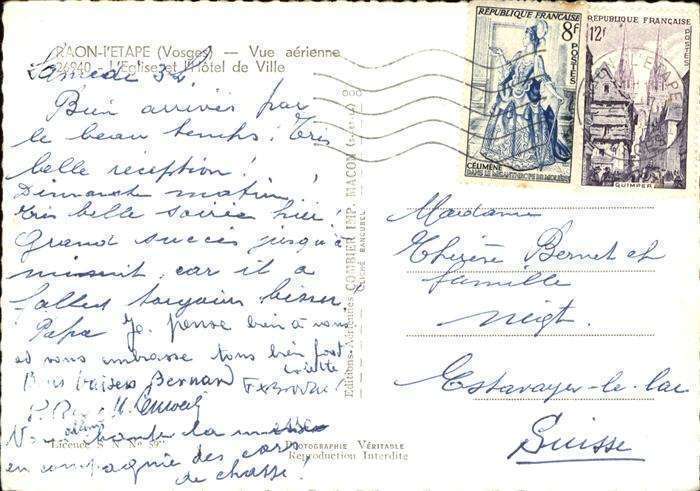 RAON-l'ETAPE (Vosges) — Vue aérienne
26940 - L'Eglise et l'Hôtel de Ville
Samedi
Bien arrivés par
le beau temps! Très
belle réception!
Dimanche matin!
très belle soirée hier!
Grand succès jusqu'à
minuit, car il a
fallu toujours bisser!
Papa Je pense bien à vous
et vous embrasse tous bien fort
Bons baisers Bernard
la
en compagnie des cors
de chasse!
Licence
Editions Aériennes COMBIER IMP. MACON
CLICHÉ RANCUREL
PHOTOGRAPHIE VÉRITABLE
Reproduction Interdite
RÉPUBLIQUE FRANÇAISE
8f
POSTES
CÉLIMÈNE
DANS LE MISANTHROPE DE MOLIÈRE
RÉPUBLIQUE FRANÇAISE
12f
POSTES
QUIMPER
Madame
Thérèse Bernet et
famille
Estavayer-le-lac
Suisse